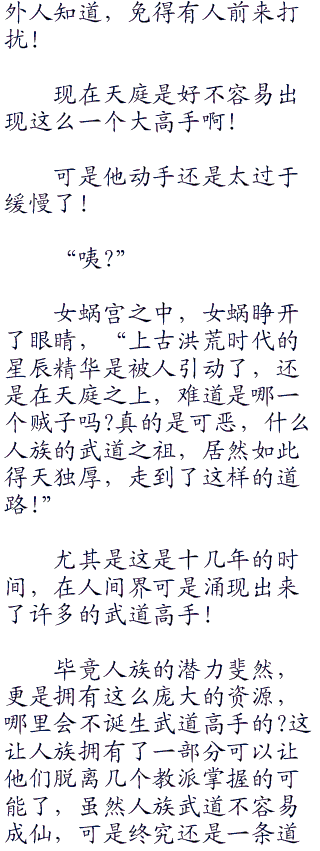 外人知道，免得有人前来打
扰！
现在天庭是好不容易出
现这么一个大高手啊！
可是他动手还是太过于
缓慢了！
“咦？”
女蜗宫之中，女蜗睁开
了眼睛，“上古洪荒时代的
星辰精华是被人引动了，还
是在天庭之上，难道是哪一
个贼子吗？真的是可恶，什么
人族的武道之祖，居然如此
得天独厚，走到了这样的道
路！”
尤其是这是十几年的时
间，在人间界可是涌现出来
了许多的武道高手！
毕竟人族的潜力斐然，
更是拥有这么庞大的资源，
哪里会不诞生武道高手的？这
让人族拥有了一部分可以让
他们脱离几个教派掌握的可
能了，虽然人族武道不容易
成仙，可是终究还是一条道